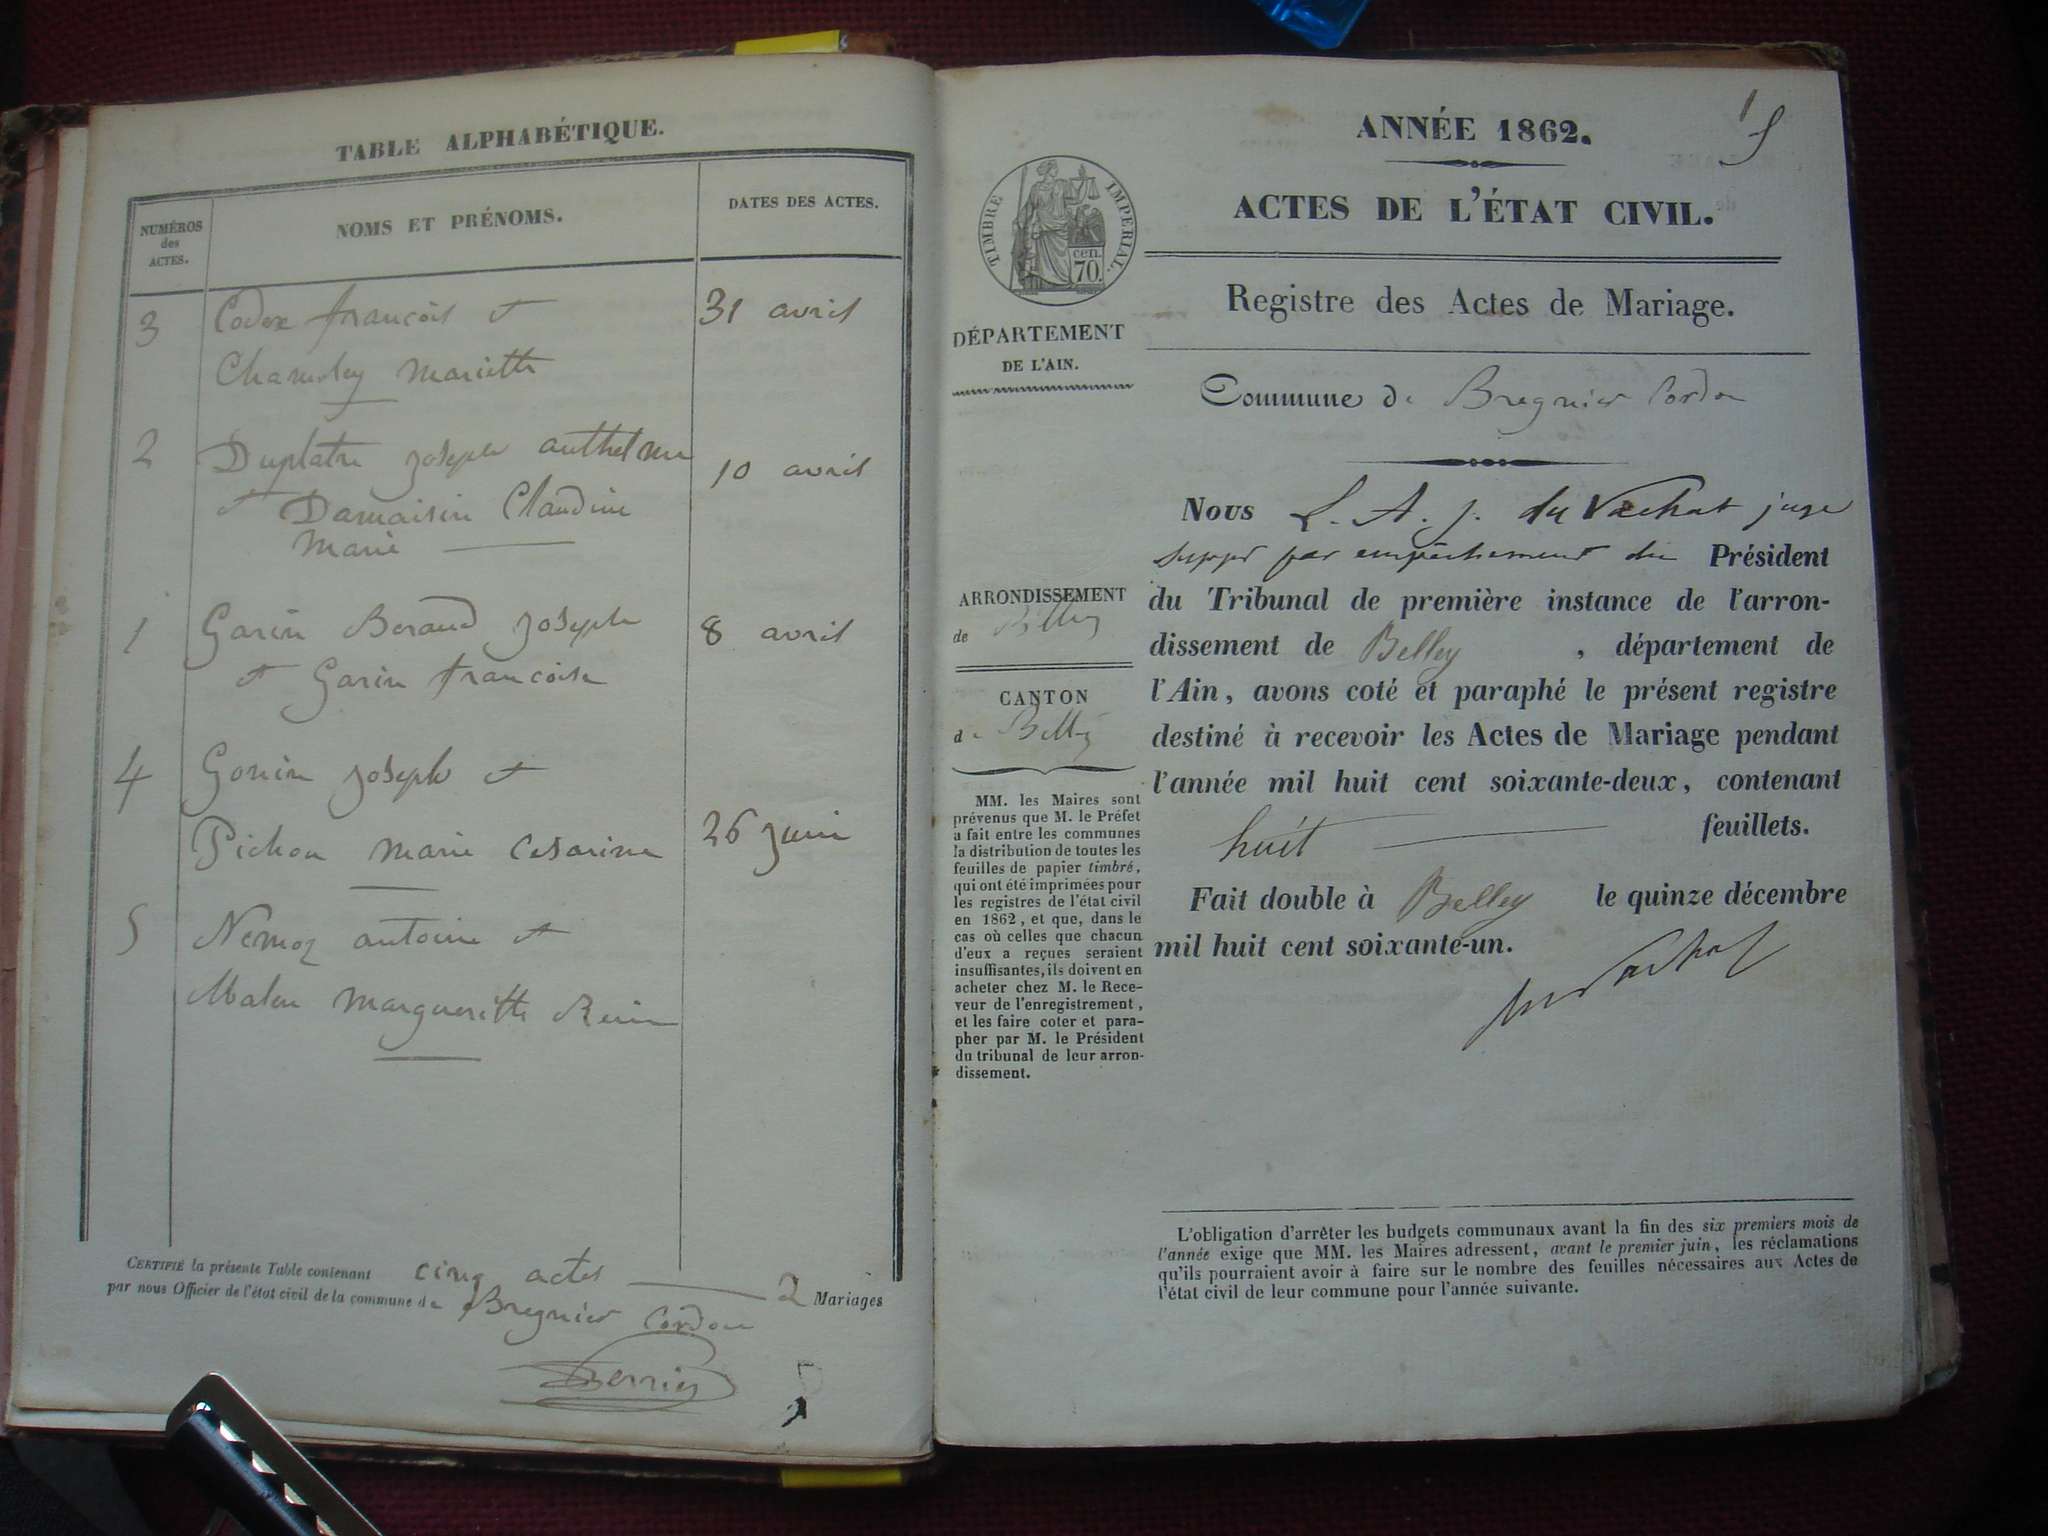 TABLE ALPHABÉTIQUE.
NUMÉROS
des
ACTES.
NOMS ET PRÉNOMS.
DATES DES ACTES.
3 Codex françois et 31 avril
mariette
2 Duplatre joseph anthelme
10 avril
et Damaisin Claudine
Marie
1 Garin Beraud joseph 8 avril
et Garin francoise
4 Gonin joseph et
Pichon marie Cesarine 26 juin
5 Nemoz antoine et
margueritte
CERTIFIÉ la présente Table contenant cinq actes 2 Mariages
par nous Officier de l'état civil de la commune de Bregnier Cordon
Perrier
ANNÉE 1862.
ACTES DE L'ÉTAT CIVIL.
Registre des Actes de Mariage.
Commune de Bregnier Cordon
TIMBRE IMPERIAL.
cen.
70.
DÉPARTEMENT
DE L'AIN.
ARRONDISSEMENT
de Belley
CANTON
de Belley
MM. les Maires sont
prévenus que M. le Préfet
a fait entre les communes
la distribution de toutes les
feuilles de papier timbré,
qui ont été imprimées pour
les registres de l'état civil
en 1862, et que, dans le
cas où celles que chacun
d'eux a reçues seraient
insuffisantes, ils doivent en
acheter chez M. le Rece-
veur de l'enregistrement,
et les faire coter et para-
pher par M. le Président
du tribunal de leur arron-
dissement.
Nous L. A. J. du Vachat juge
suppt par empêchement du Président
du Tribunal de première instance de l'arron-
dissement de Belley , département de
l'Ain, avons coté et paraphé le présent registre
destiné à recevoir les Actes de Mariage pendant
l'année mil huit cent soixante-deux, contenant
huit feuillets.
Fait double à Belley le quinze décembre
mil huit cent soixante-un.
du Vachat
L'obligation d'arrêter les budgets communaux avant la fin des six premiers mois de
l'année exige que MM. les Maires adressent, avant le premier juin, les réclamations
qu'ils pourraient avoir à faire sur le nombre des feuilles nécessaires aux Actes de
l'état civil de leur commune pour l'année suivante.